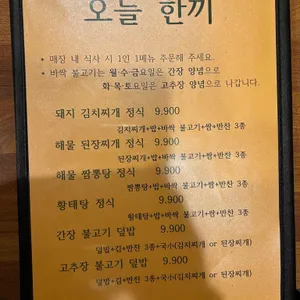 오늘 한끼
• 매장 내 식사 시 1인 1메뉴 주문해 주세요.
• 바싹 불고기는 월·수·금요일은 간장 양념으로
화·목·토요일은 고추장 양념으로 나갑니다.
돼지 김치찌개 정식 9.900
김치찌개+밥+바싹 불고기+쌈+반찬 3종
해물 된장찌개 정식 9.900
된장찌개+밥+바싹 불고기+쌈+반찬 3종
해물 짬뽕탕 정식 9.900
짬뽕탕+밥+바싹 불고기+쌈+반찬 3종
황태탕 정식 9.900
황태탕+밥+바싹 불고기+쌈+반찬 3종
간장 불고기 덮밥 9.900
덮밥+김+반찬 3종+국小(김치찌개 or 된장찌개)
고추장 불고기 덮밥 9.900
덮밥+김+반찬 3종+국小(김치찌개 or 된장찌개)